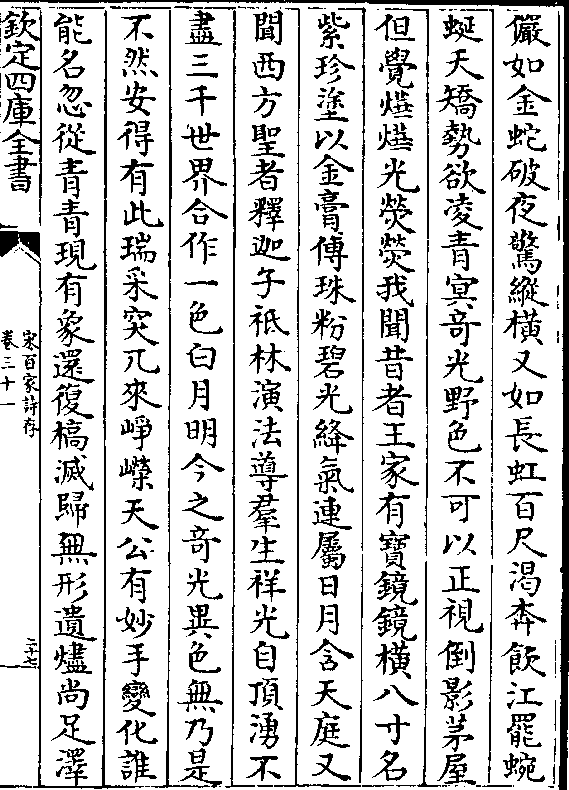 儼如金蛇破夜驚縱橫又如長虹百尺渴奔飲江罷蜿
蜒天矯勢欲凌青冥奇光野色不可以正視倒影茅屋
但覺𤑹𤑹光熒熒我聞昔者王家有寶鏡鏡橫八寸名
紫珍塗以金膏傅珠粉碧光絳氣連屬日月含天庭又
聞西方聖者釋迦子祇林演法導羣生祥光自頂湧不
盡三千世界合作一色白月明今之奇光異色無乃是
不然安得有此瑞采突兀來崢嶸天公有妙手變化誰
能名忽從青青現有象還復槁滅歸無形遺燼尚足澤
欽定四庫全書
宋百家詩存
卷三十一
二十七